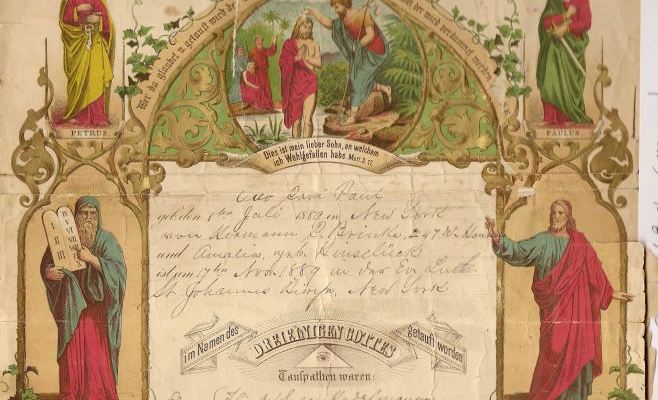 Wer da glaubet u. getauft wird der
der wird verdammet werden.
PETRUS.
PAULUS.
Dies ist mein lieber Sohn, an welchem
ich Wohlgefallen habe. Matt. 3. 17.
I II III
Paul
geboren 1ten Juli 1889 in New York
von Hermann Brinke, 247 W.
und Amalia, geb. Hinselück
ist am 17ten Nov. 1889 in der Ev. Luth.
St. Johannis Kirche, New York
im Namen des DREIEINIGEN GOTTES getauft worden
Taufpathen waren: